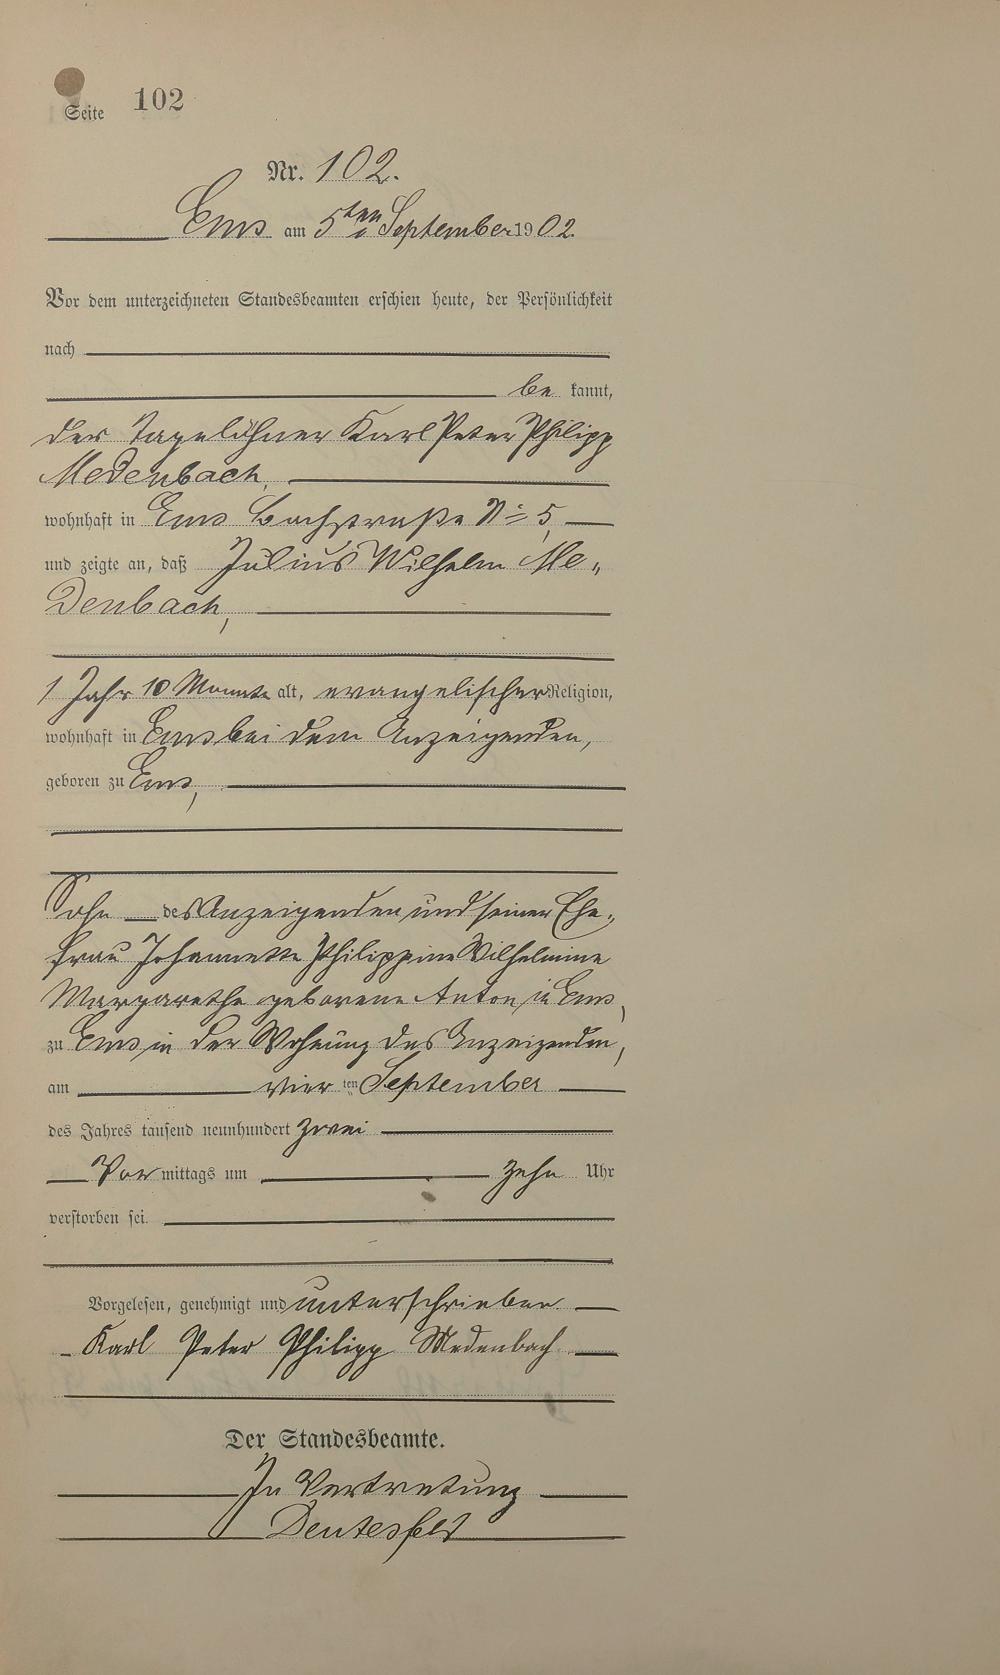 Seite 102
Nr. 102.
Ems am 5ten September 1902.
Vor dem unterzeichneten Standesbeamten erschien heute, der Persönlichkeit
nach
be kannt,
der Tagelöhner Karl Peter Philipp
Medenbach,
wohnhaft in Ems Bachstraße No 5,
und zeigte an, daß Julius Wilhelm Me-
denbach,
1 Jahr 10 Monate alt, evangelischer Religion,
wohnhaft in Ems bei dem Anzeigenden,
geboren zu Ems,
Sohn des Anzeigenden und seiner Ehe-
frau Johannette Philippine Wilhelmine
Margarethe geborene Anton in Ems,
zu Ems in der Wohnung des Anzeigenden,
am vier ten September
des Jahres tausend neunhundert zwei
Vor mittags um zehn Uhr
verstorben sei.
Vorgelesen, genehmigt und unterschrieben.
Karl Peter Philipp Medenbach
Der Standesbeamte.
In Vertretung
Deutesfeld